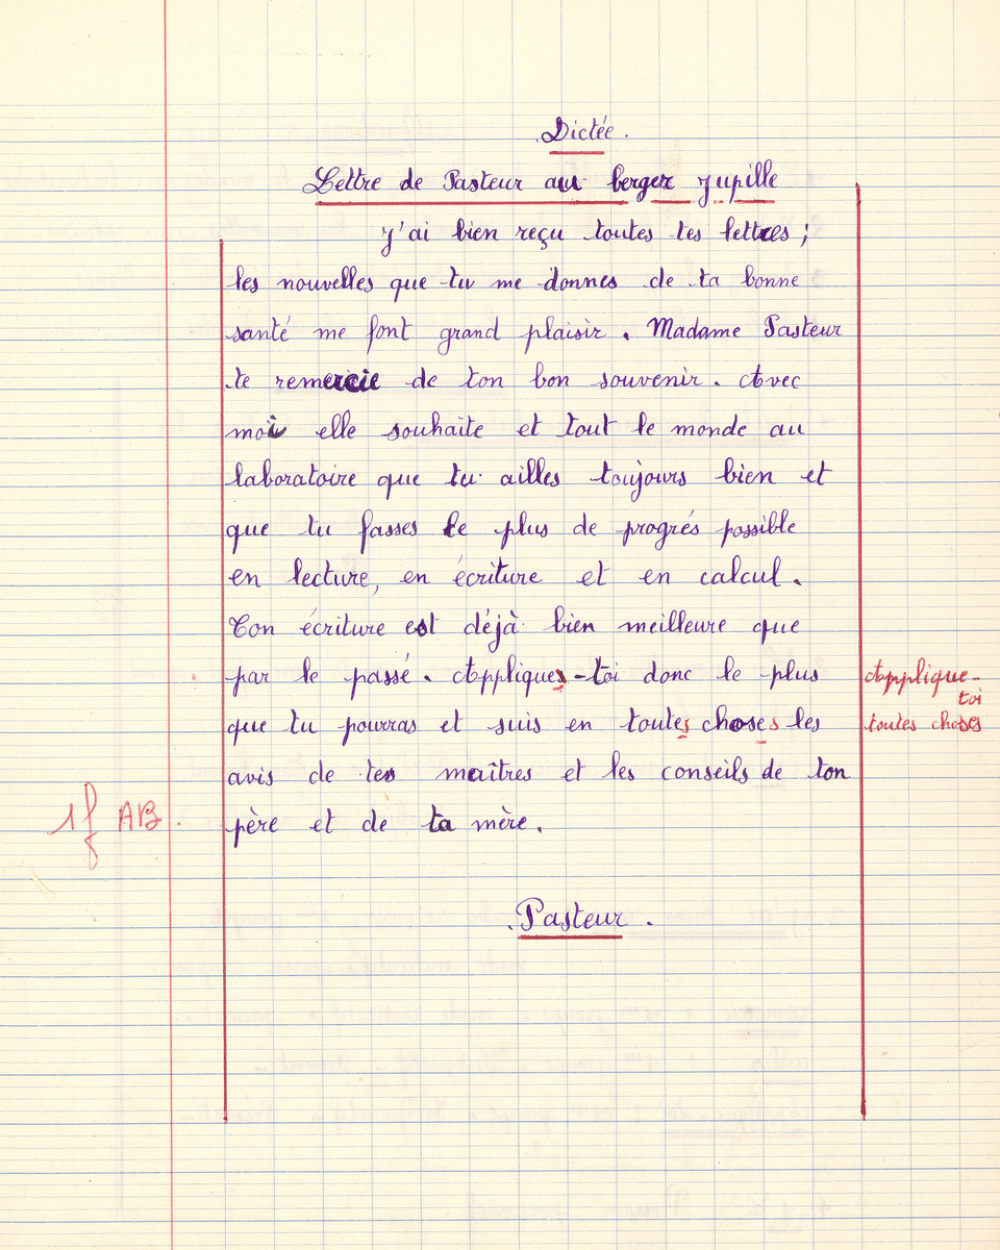 Dictée.
Lettre de Pasteur au berger Jupille
J'ai bien reçu toutes tes lettres ;
les nouvelles que tu me donnes de ta bonne
santé me font grand plaisir. Madame Pasteur
te remercie de ton bon souvenir. Avec
moi elle souhaite et tout le monde au
laboratoire que tu ailles toujours bien et
que tu fasses le plus de progrés possible
en lecture, en écriture et en calcul.
Ton écriture est déjà bien meilleure que
par le passé. Appliques-toi donc le plus
Applique-
toi
que tu pourras et suis en toutes choses les
toutes choses
avis de tes maîtres et les conseils de ton
père et de ta mère.
1f AB.
Pasteur.